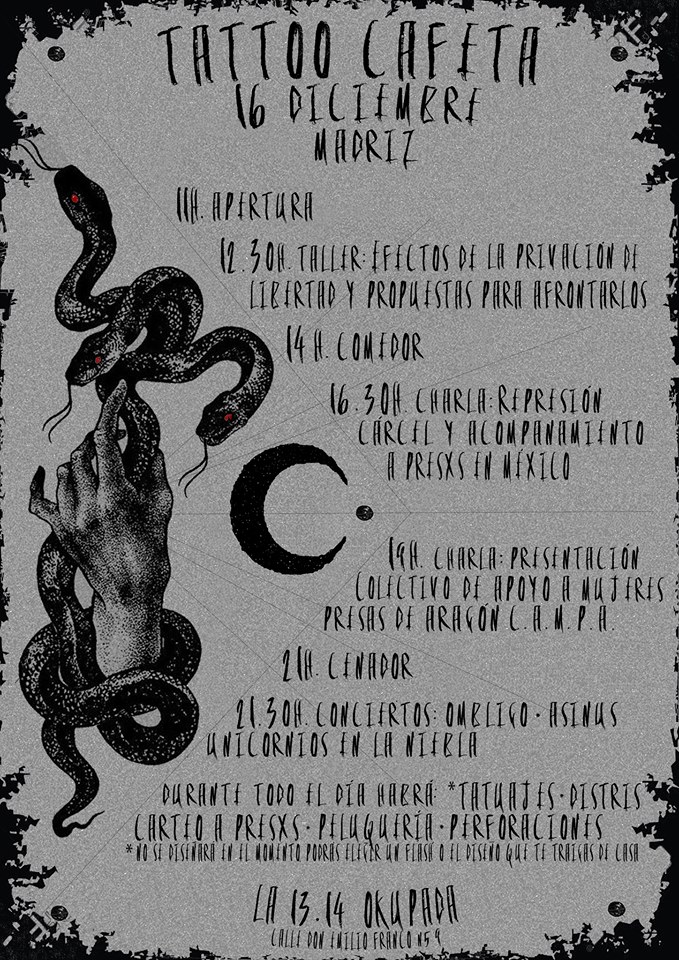 TATTOO CAFETA
16 DICIEMBRE
MADRIZ
11H. APERTURA
12.30H. TALLER: EFECTOS DE LA PRIVACIÓN DE
LIBERTAD Y PROPUESTAS PARA AFRONTARLOS
14H. COMEDOR
16.30H. CHARLA: REPRESIÓN
CARCEL Y ACOMPANAMIENTO
A PRESXS EN MÉXICO
19H. CHARLA: PRESENTACIÓN
COLECTIVO DE APOYO A MUJERES
PRESAS DE ARAGÓN C.A.M.P.A.
21H. CENADOR
21.30H. CONCIERTOS: OMBLIGO · ASINUS
UNICORNIOS EN LA NIEBLA
DURANTE TODO EL DÍA HABRÁ: *TATUAJES · DISTRIS
CARTEO A PRESXS · PELUQUERÍA · PERFORACIONES
*NO SE DISEÑARA EN EL MOMENTO PODRAS ELEGIR UN FLASH O EL DISEÑO QUE TE TRAIGAS DE CASA
LA 13.14 OKUPADA
CALLE DON EMILIO FRANCO N59